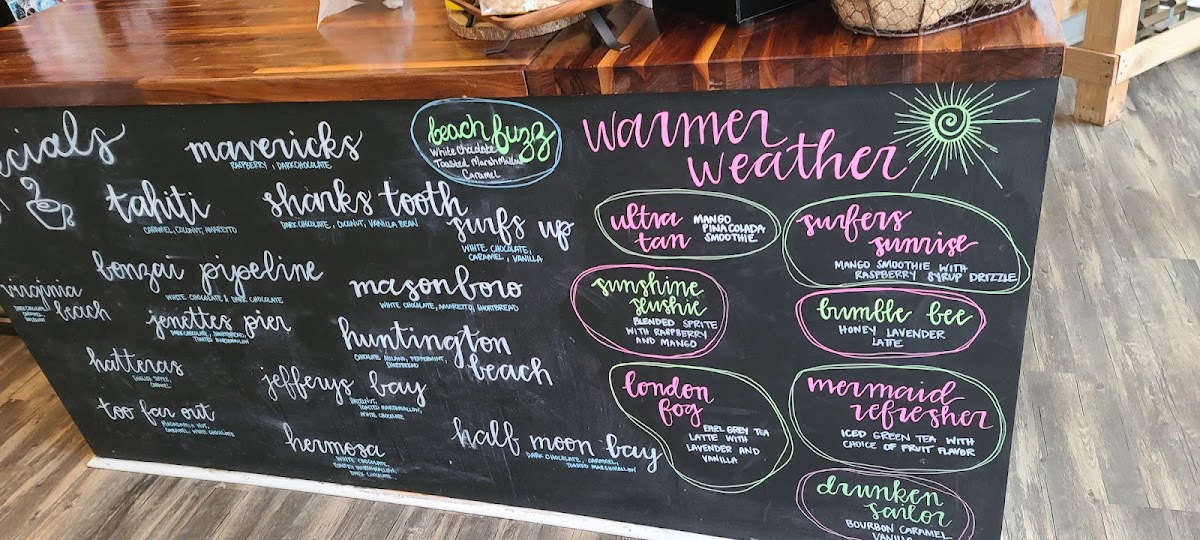 cials
mavericks
RASPBERRY, DARK CHOCOLATE
beach fuzz
White Chocolate
Toasted Marshmallow
Caramel
tahiti
CARAMEL, COCONUT, AMARETTO
sharks tooth
DARK CHOCOLATE, COCONUT, VANILLA BEAN
surfs up
WHITE CHOCOLATE,
CARAMEL, VANILLA
bonzai pipeline
WHITE CHOCOLATE & DARK CHOCOLATE
masonboro
WHITE CHOCOLATE, AMARETTO, SHORTBREAD
virginia
beach
jenettes pier
DARK CHOCOLATE, SHORTBREAD,
TOASTED MARSHMALLOW
huntington
beach
CHOCOLATE MILANO, PEPPERMINT,
SHORTBREAD
hatteras
CARAMEL
jefferys bay
TOASTED MARSHMALLOW,
WHITE CHOCOLATE
too far out
MACADAMIA NUT,
CARAMEL, WHITE CHOCOLATE
hermosa
WHITE CHOCOLATE,
TOASTED MARSHMALLOW,
DARK CHOCOLATE
half moon bay
DARK CHOCOLATE, CARAMEL,
TOASTED MARSHMALLOW
warmer
weather
ultra
tan
MANGO
PINA COLADA
SMOOTHIE
surfers
sunrise
MANGO SMOOTHIE WITH
RASPBERRY SYRUP DRIZZLE
sunshine
slushie
BLENDED SPRITE
WITH RASPBERRY
AND MANGO
bumble bee
HONEY LAVENDER
LATTE
london
fog
EARL GREY TEA
LATTE WITH
LAVENDER AND
VANILLA
mermaid
refresher
ICED GREEN TEA WITH
CHOICE OF FRUIT FLAVOR
drunken
sailor
BOURBON CARAMEL
VANILLA